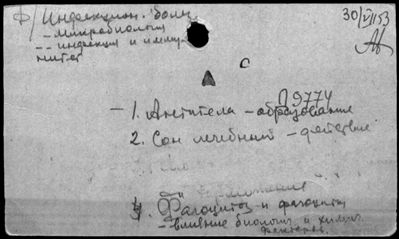 Ф/ Инфекцион. бол.
- микробиология
-- инфекция и имму-
нитет
30/VI 53
П9774
- 1. Антитела - образование
2. Сон лечебный - действие
3. Фагоцитоз и фагоциты
- влияние биологич. и химич.
факторов.